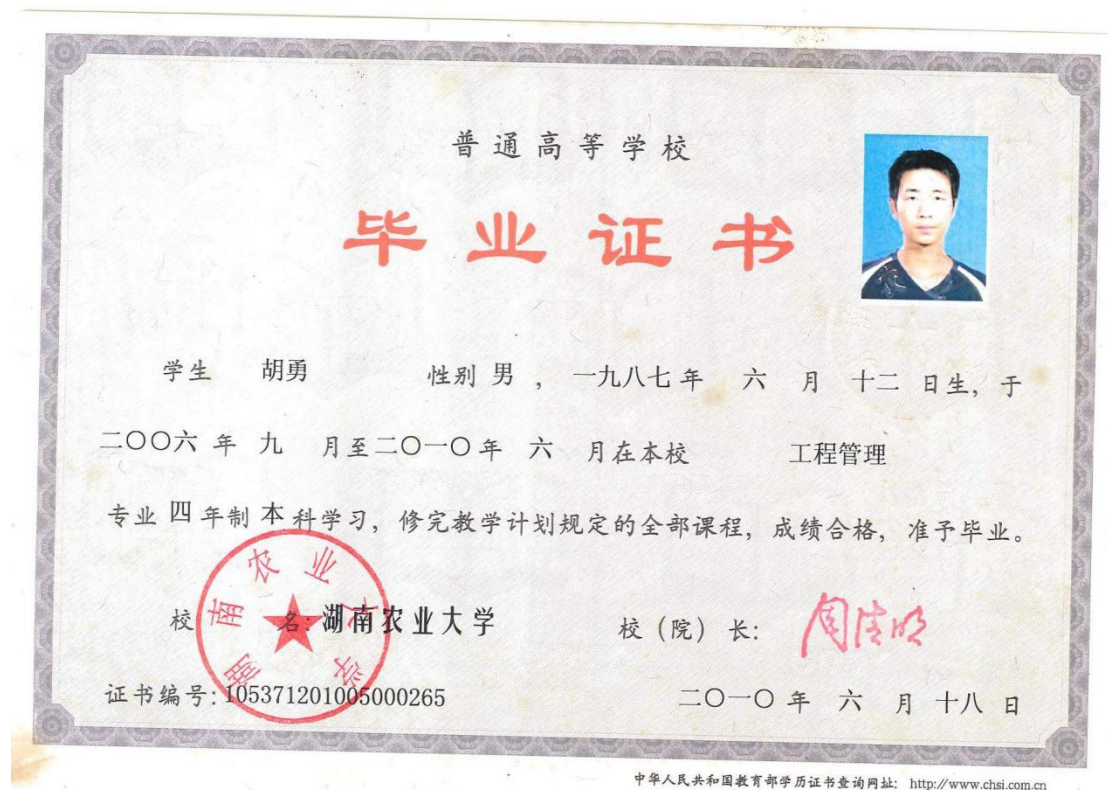 普通高等学校
毕业证书
学生 胡勇 性别 男 ， 一九八七 年 六 月 十二 日生，于
二〇〇六 年 九 月至二〇一〇年 六 月在本校 工程管理
专业 四 年制 本 科学习，修完教学计划规定的全部课程，成绩合格，准予毕业。
湖南农业大学
校 名: 湖南农业大学 校（院）长: 周清明
证书编号: 105371201005000265 二〇一〇 年 六 月 十八 日
中华人民共和国教育部学历证书查询网址: http://www.chsi.com.cn